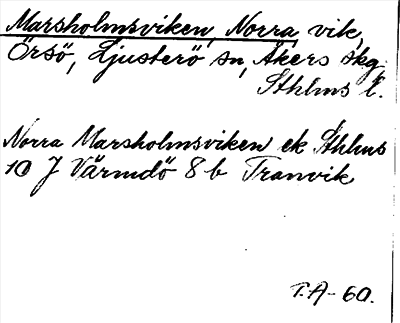 Marsholmsviken, Norra, vik,
Örsö, Ljusterö sn, Åkers skg
Sthlms l.
Norra Marsholmsviken ek Sthlms
10 J Värmdö 8 b Tranvik
T.A-60.